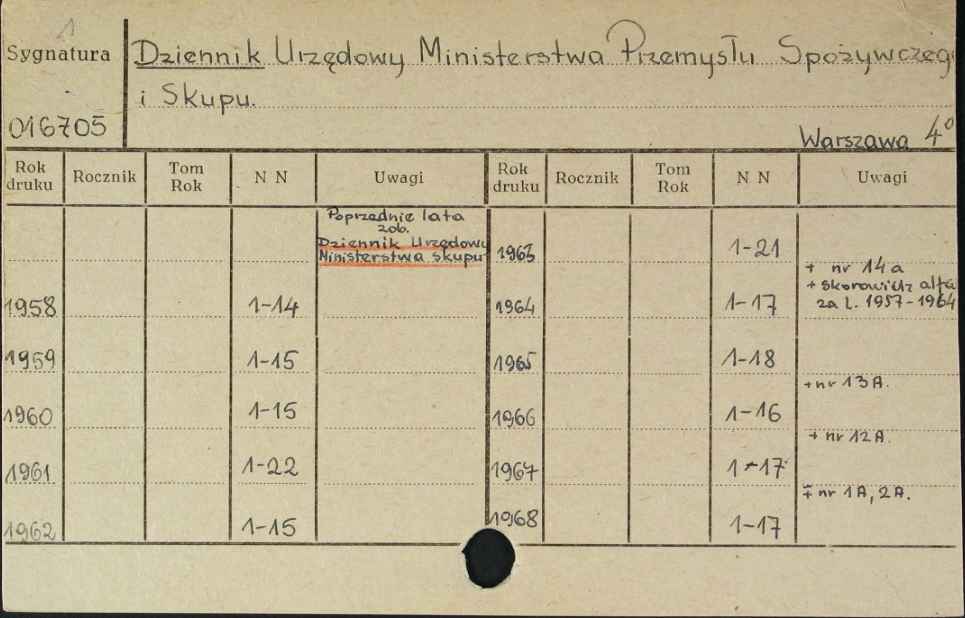 1
Sygnatura
Dziennik Urzędowy Ministerstwa Przemysłu Spożywczego
i Skupu.
016705
Warszawa 4°
Rok druku Rocznik Tom Rok N N Uwagi Rok druku Rocznik Tom Rok N N Uwagi
Poprzednie lata
zob.
Dziennik Urzędowy
Ministerstwa skupu
1963 1-21
+ nr 14a
+ skorowidz alfa
za l. 1957-1964
1958 1-14 1964 1-17
1959 1-15 1965 1-18
+ nr 13A.
1960 1-15 1966 1-16
+ nr 12A.
1961 1-22 1967 1-17
+ nr 1A, 2A.
1962 1-15 1968 1-17